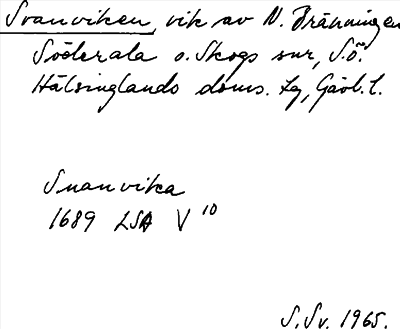 Svanviken, vik av N. Bränningen
Söderala o. Skogs snr, S.Ö.
Hälsinglands doms. lg, Gävl. l.
Snanvika
1689 LSA V 10
S. Sv. 1965.